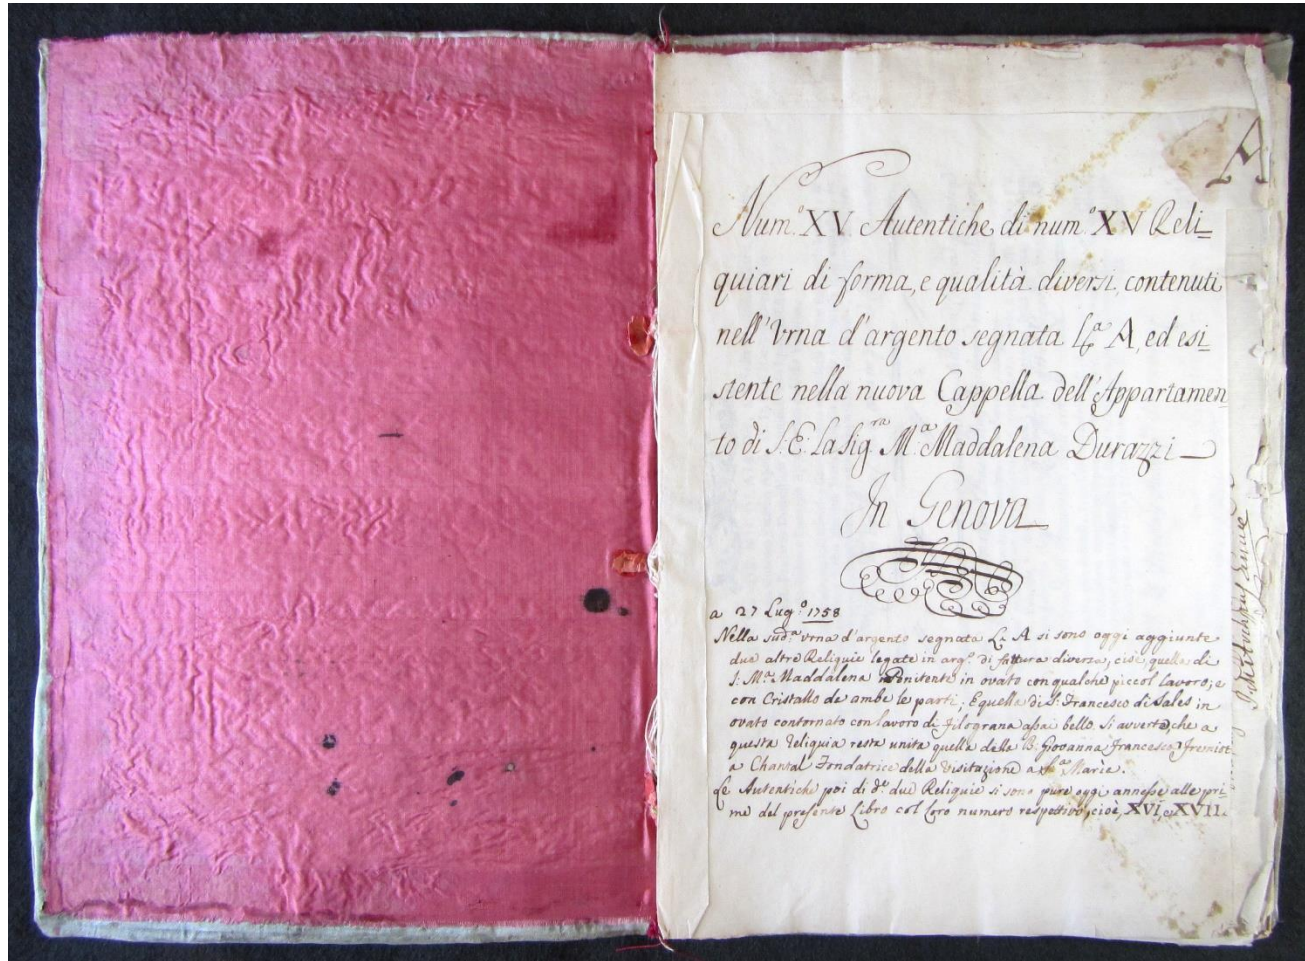 A
Num.º XV Autentiche di num.º XV Reli=
quiari di forma, e qualità diversi, contenuti
nell'Vrna d'argento segnata L.ª A, ed esi=
stente nella nuova Cappella dell'Appartamen
to di S. E. La Sig.ra M.ª Maddalena Durazzi
In Genova
a 27 Lug.º 1758
Nella sud.ª vrna d'argento segnata L.ª A si sono oggi aggiunte
due altre Reliquie legate in arg.º di fattura diversa, cioè, quella di
S. M.ª Maddalena penitente in ovato con qualche piccol lavoro; e
con Cristallo da ambe le parti; E quella di S. Francesco di Sales in
ovato contornato con lavoro di filograna assai bello. Si avverta, che a
questa Reliquia resta unita quella della B. Giovanna Francesca Fremiot
a Chantal Fondatrice della Visitazione a S.ª Marie.
Le Autentiche poi di d.e due Reliquie si sono pure oggi annesse alle pri=
me del presente Libro col loro numero respettivo, cioè, XVI, e XVII.